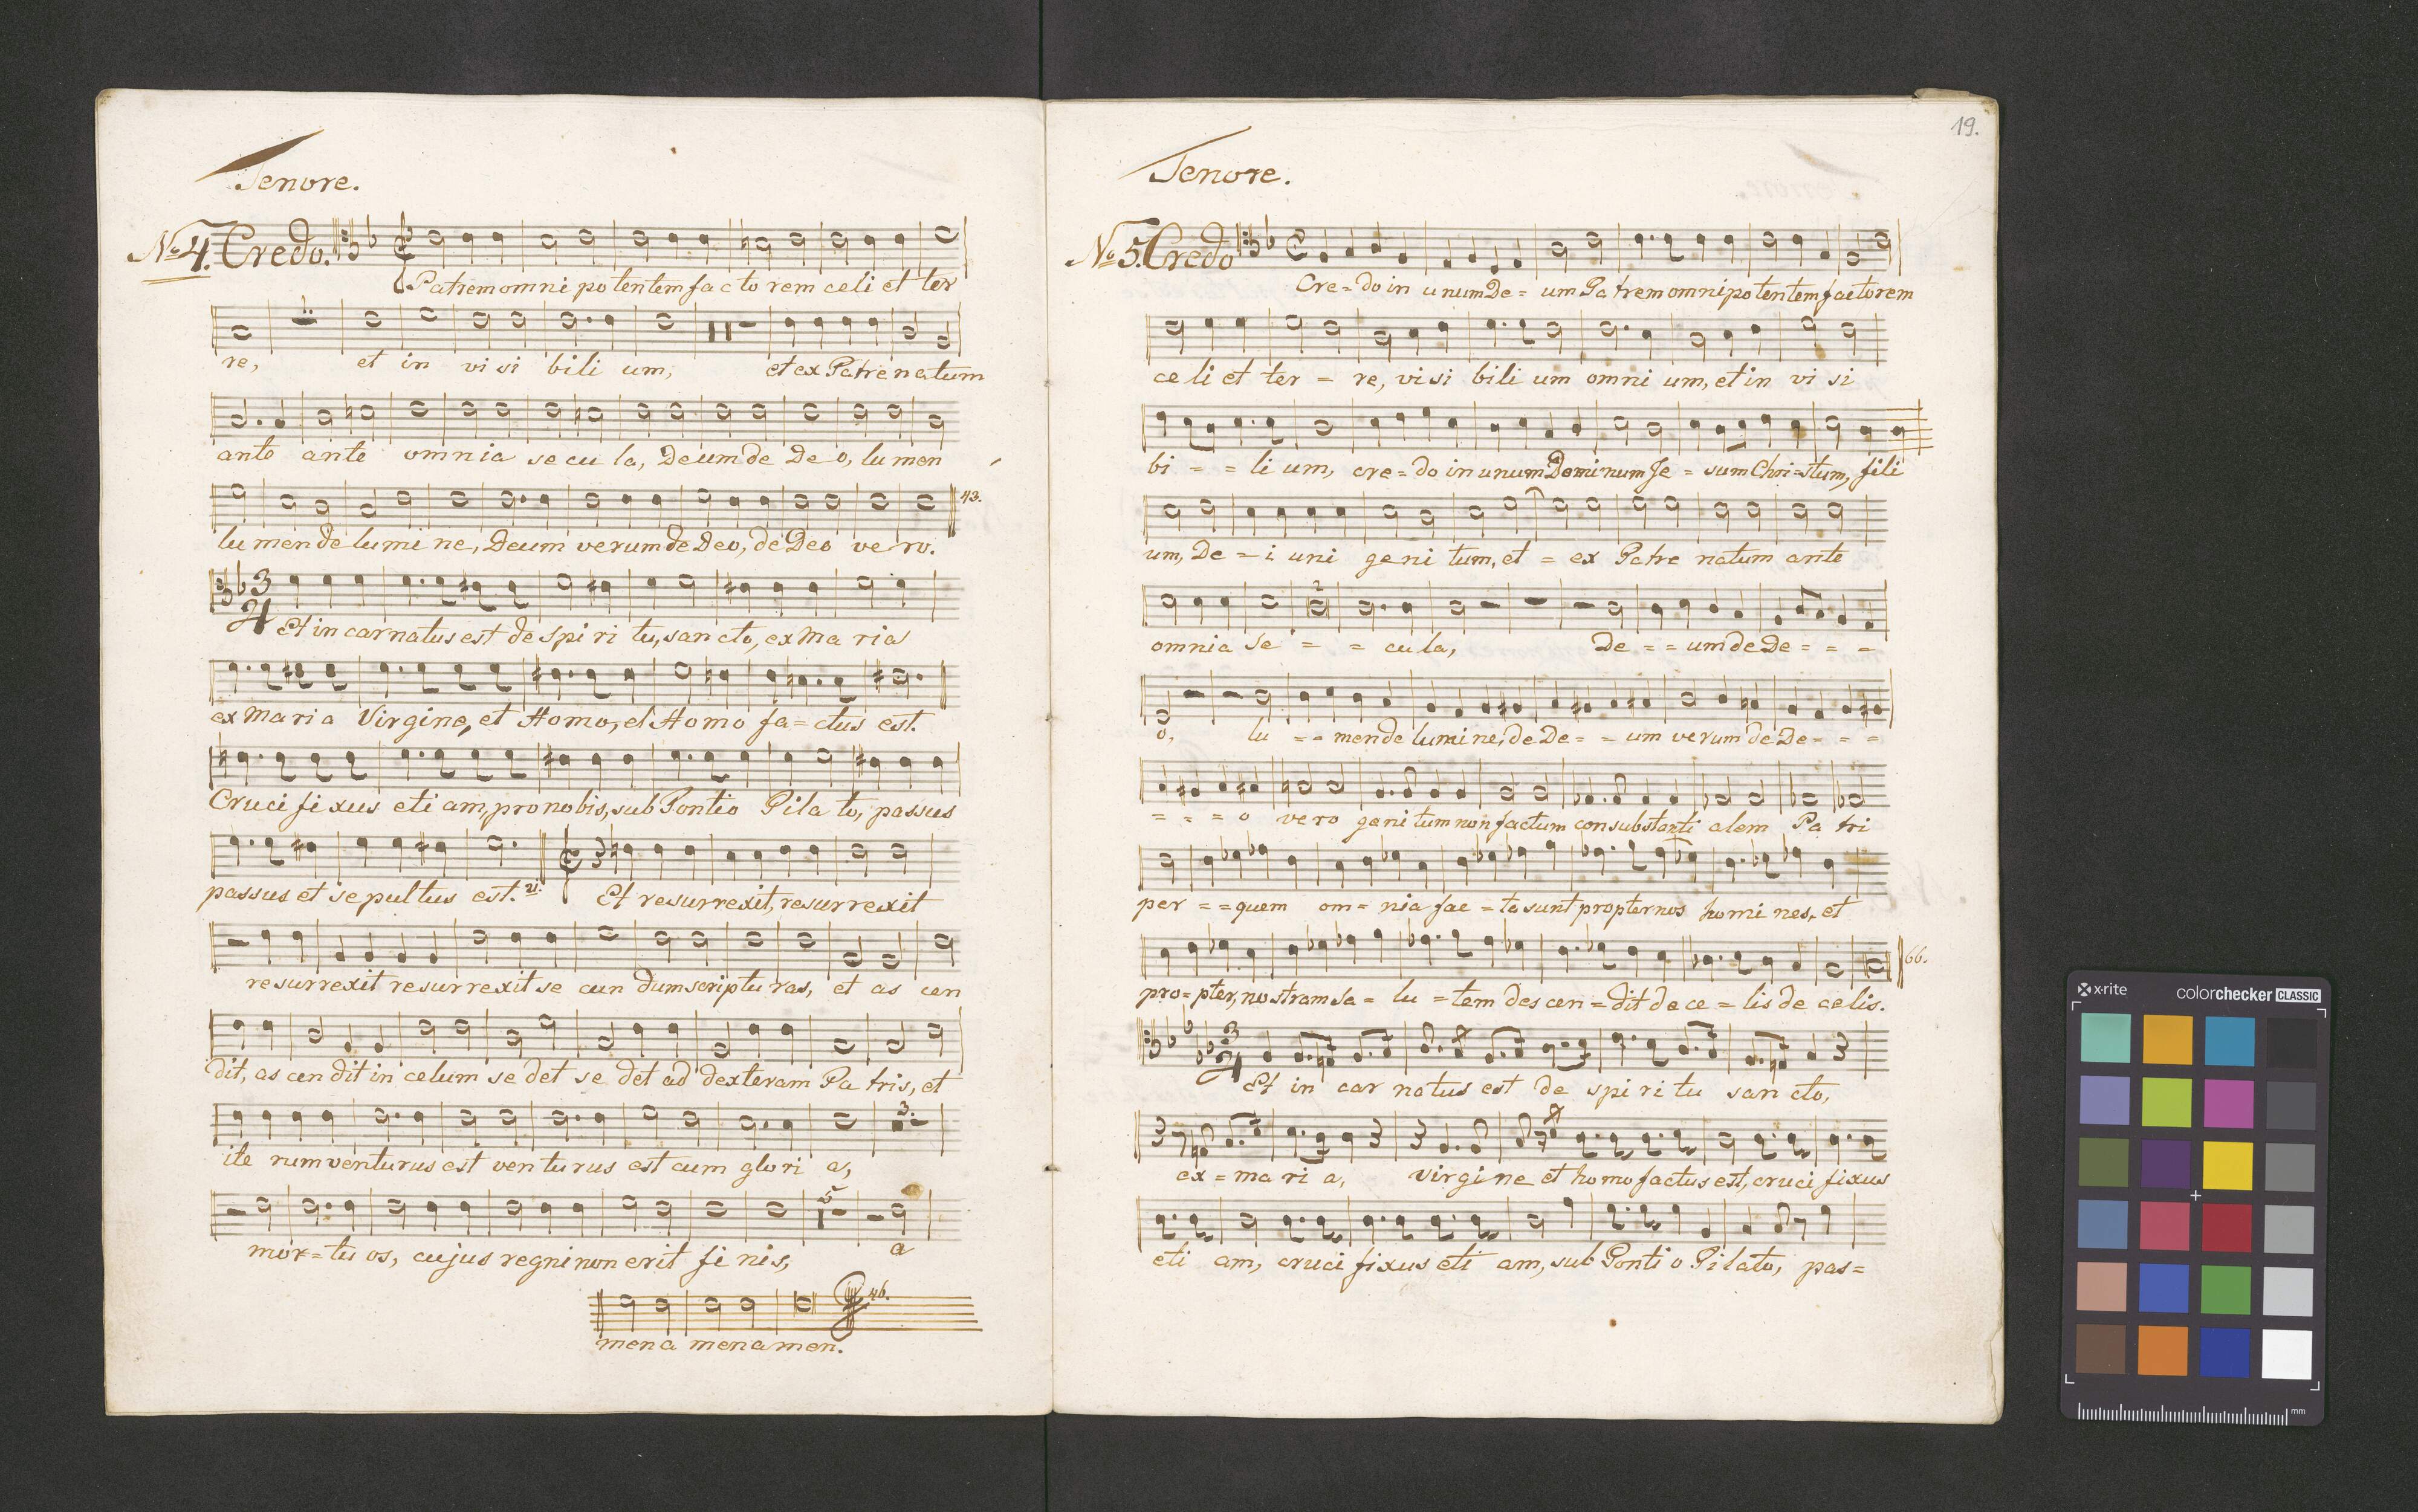 Tenore.
No 4. Credo.
Patrem omni potentem factorem celi et ter
re, et in visi bili um, et ex Patre natum
ante ante omnia secu la, Deum de Deo, lumen
lumen de lumi ne, Deum verum de Deo, de Deo vero.
43.
3
4
Et in carnatus est de spi ri tu, san cto, ex Ma ria
ex Maria Virgine, et Homo, et Homo fa=ctus est.
Cruci fi xus eti am, pro nobis, sub Pontio Pila to, passus
passus et se pultus est. 21.
3
Et resurrexit, resurrexit
resurrexit resurrexit se cun dum scriptu ras, et as cen
dit, as cen dit in celum se det se det ad dexteram Pa tris, et
3.
ite rum venturus est ven tu rus est cum glo ri a,
mor=tu os, cujus regni non erit fi nis, a
46.
men a men a men.
19.
Tenore.
No 5. Credo
Cre=do in unum De=um Pa trem omnipotentem factorem
ce li et ter = re, visi bili um omni um, et in vi si
bi = = li um, cre=do in unum Dominum Je = sum Chri=stum, fili
um, De = i uni geni tum, et = ex Patre natum ante
2
omnia se = = cu la, De = = um de De = = =
o, lu = = men de lumine, de De = = um verum de De = = =
= = = o vero geni tum non factum consubstanti alem Pa tri
per = = quem om= nia fac = ta sunt propter nos homi nes, et
pro=pter, nostram Sa = lu = tem des cen = dit de ce = lis de celis.
66.
3
4
Et in car natus est de spi ri tu san cto,
ex = ma ri a, virgi ne et homo factus est, cruci fixus
eti am, cruci fixus eti am, sub Ponti o Pilato, pas=
x-rite
colorchecker CLASSIC
mm